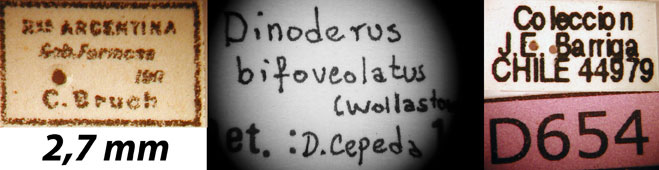 Rep. ARGENTINA
Gob. Formosa
190
C. Bruch
2,7 mm
Dinoderus
bifoveolatus
(Wollaston
Det. : D. Cepeda
Coleccion
J.E. Barriga
CHILE 44979
D654